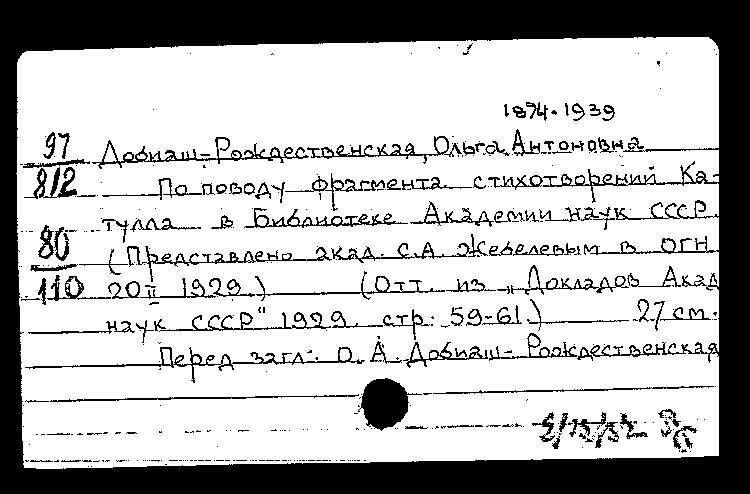 1874-1939
97 Добиаш-Рождественская, Ольга Антоновна
812 По поводу фрагмента стихотворений Ка-
тулла в Библиотеке Академии наук СССР.
80 (Представлено акад. С.А. Жебелевым в ОГН
110 20 II 1929.) (Отт. из „Докладов Акад
наук СССР" 1929. стр. 59-61.) 27 см.
Перед загл.: О. А. Добиаш-Рождественская